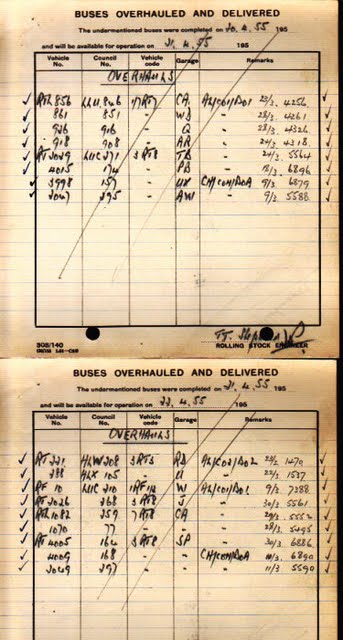 BUSES OVERHAULED AND DELIVERED
The undermentioned buses were completed on 20.4.55 195
and will be available for operation on 21.4.55 195
Vehicle No. Council No. Vehicle code Garage Remarks
OVERHAULS
RTL 856 LLU 846 7RT7 CA AL/CO1/DO1 4256
861 851 - WD - 28/3. 4261
926 916 - Q - 28/3. 4326
918 908 - AR - 24/3. 4318
RT 3029 LUC 371 3RT8 TB - 24/3. 5564
4015 174 - PB - 18/3. 6896
3998 157 - UX CH/COH/DOA 9/3. 6879
3047 395 - AW - 9/3. 5588
308/140
ROLLING STOCK ENGINEER
BUSES OVERHAULED AND DELIVERED
The undermentioned buses were completed on 21.4.55 195
and will be available for operation on 22.4.55 195
Vehicle No. Council No. Vehicle code Garage Remarks
OVERHAULS
RT 221 HLW 208 3RT3 RD AL/CO2/DO2 1470
288 HLX 105 - U - 1537
RF 10 LUC 210 1RF W AL/CO1/DO1 9/3 7288
RT 3026 368 3RT8 J - 30/3 5561
RTL 1082 359 7RT8 CA - 29/3. 5552
1070 77 - - - 28/3.
RT 4005 164 3RT8 SP - 30/3 6886
4009 168 - - CH/COH/DOA 10/3. 6890
3049 397 - - - 11/3 5590